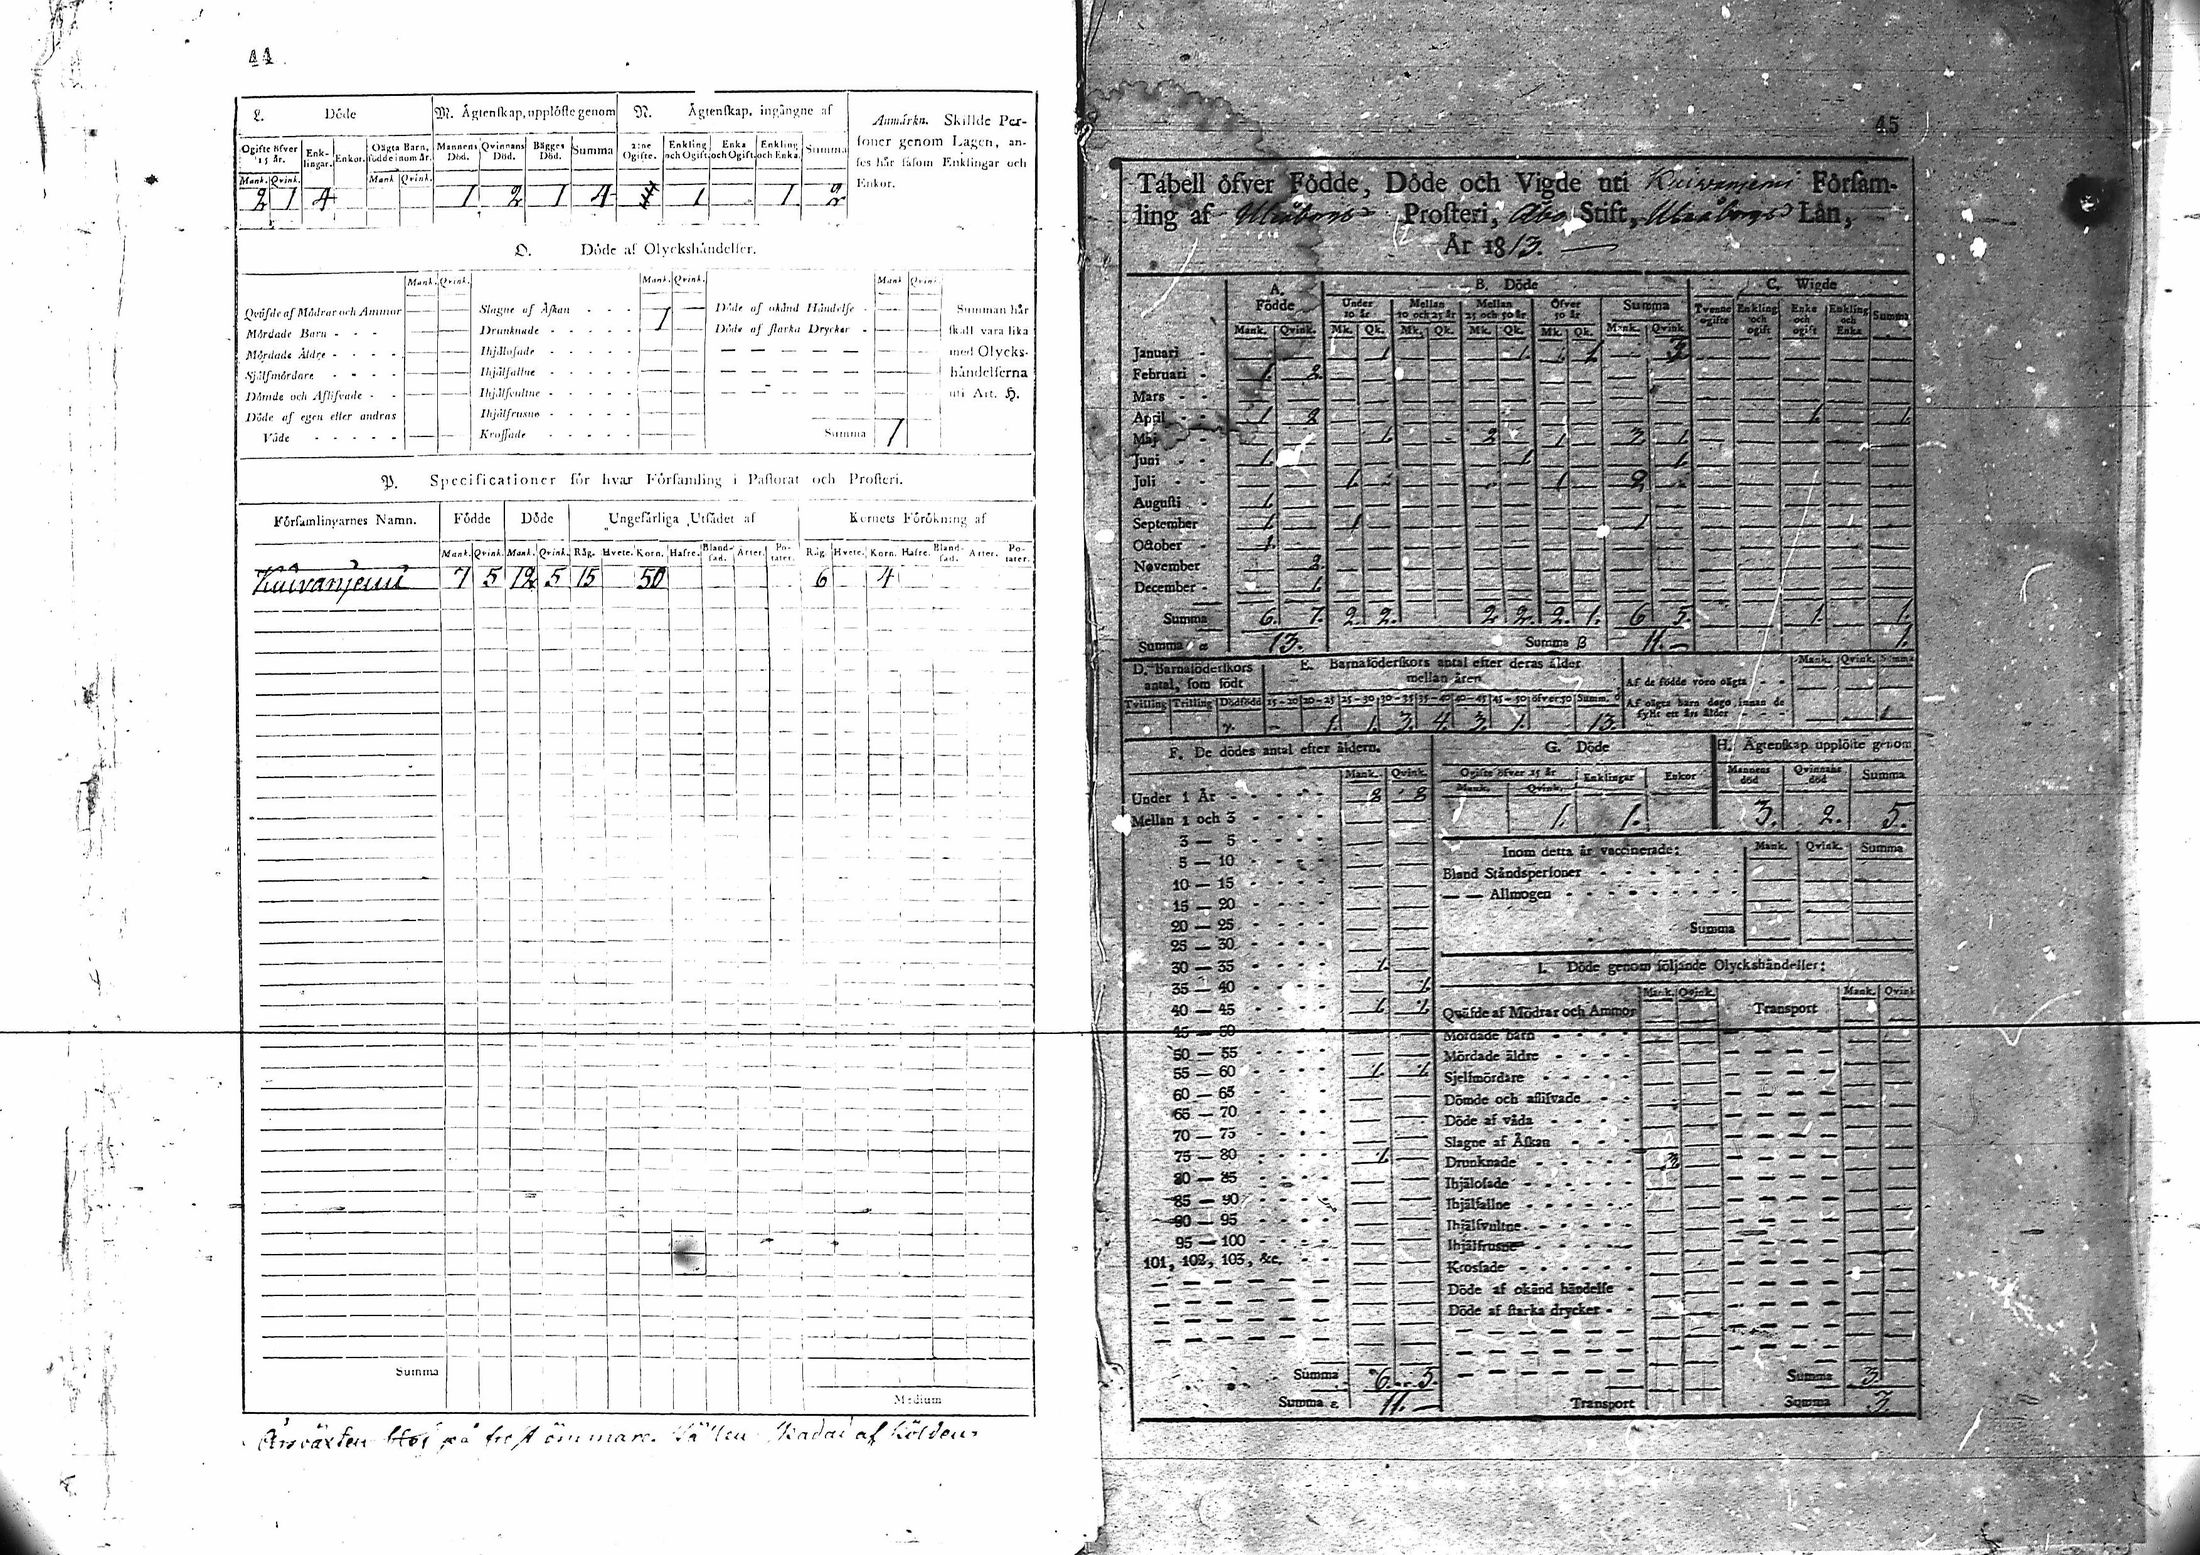 44
L. Döde
M. Ägtenſkap, upplöſte genom
N. Ägtenſkap, ingångne af
Anmärkn. Skillde Per-
ſoner genom Lagen, an-
ſes här ſåſom Enklingar och
Enkor.
Ogifte öfver 15 år. Enk-lingar. Enkor. Oägta Barn, födde inom år. Mannens Död. Qvinnans Död. Bägges Död. Summa 2:ne Ogifte. Enkling och Ogift Enka och Ogift Enkling och Enka. Summa
Mank. Qvink. Mank Qvink.
2 1 4 1 2 1 4 1 1 2
O. Döde af Olyckshändelſer.
Mank. Qvink. Mank. Qvink. Mank Qvink
Qväfde af Mödrar och Ammor Slagne af Åſkan - - - Döde af okänd Händelſe - Summan här
Mördade Barn - - - Drunknade - - - - - 1 Döde af ſtarka Drycker - - ſkall vara lika
Mördade Äldre - - - - Ihjälofade - - - - - med Olycks-
Sjålfmördare - - - - Ihjälfallne - - - - - händelſerna
Dömde och Aflifvade - - Ihjälfvultne - - - - - uti Art. H.
Döde af egen eller andras Ihjälfrusne - - - - -
Våde - - - - - Kroſſade - - - - - Summa 1
P. Specificationer för hvar Förſamling i Paſtorat och Proſteri.
Förſamlingarnes Namn. Födde Döde Ungefärliga Utſådet af Kornets Förökning af
Mank. Qvink. Mank. Qvink. Råg. Hvete. Korn. Hafre. Bland-ſäd. Ärter. Po-tater. Råg. Hvete. Korn. Hafre. Bland-ſäd. Ärter. Po-tater.
Kuivaniemi 7 5 12 5 15 50 6 4
Summa
Medium
Årsväxten af Kölden
45
Tabell öfver Födde, Döde och Vigde uti Kuivaniemi Förſam-
ling af Uleåborgs Proſteri, Åbo Stift, Uleåborgs Län,
År 1813.
A. Födde B. Döde C. Wigde
Under 10 år Mellan 10 och 25 år Mellan 25 och 50 år Öfver 50 år Summa Tvenne ogifte Enkling och ogift Enka och ogift Enkling och Enka Summa
Mank. Qvink. Mk. Qk. Mk. Qk. Mk. Qk. Mk. Qk. Mank. Qvink
Januari - 1 1 1 3
Februari - 1. 2.
Mars - -
April - - 1 1. 1.
Maj - - 1. 2 1 1.
Juni - - 1. 1 1.
Juli - - 1. 1 2
Auguſti - 1.
September 1. 1 1
October - 1.
November 2.
December - 1.
Summa 6. 7. 2. 2. 2 2. 2. 1. 6 5. 1. 1.
Summa α 13. Summa β 11. 1.
D. Barnaföderſkors antal, ſom födt
E. Barnaföderſkors antal efter deras ålder mellan åren
Mank. Qvink. Summa
Af de födde voro oägta - -
Af oägta barn dogo innan de fyllt ett års ålder - - -
Tvilling Trilling Dödfödd 15-20 20-25 25-30 30-35 35-40 40-45 45-50 öfver 50 Summ.
1. 1. 3. 4. 3. 1. 13.
F. De dödes antal efter åldern.
Mank. Qvink.
Under 1 År - - - - - 2 2
Mellan 1 och 3 - - - -
3 — 5 - - - -
5 — 10 - - - -
10 — 15 - - - -
15 — 20 - - - -
20 — 25 - - - -
25 — 30 - - - -
30 — 35 - - - - 1.
35 — 40 - - - - 1.
40 — 45 - - - - 1. 1.
45 — 50 - - - -
50 — 55 - - - -
55 — 60 - - - - 1. 1.
60 — 65 - - - -
65 — 70 - - - -
70 — 75 - - - -
75 — 80 - - - - 1.
80 — 85 - - - -
85 — 90 - - - -
90 — 95 - - - -
95 — 100 - - - -
101, 102, 103, &c. - -
Summa 6 5.
Summa ε 11.
G. Döde
Ogifte öfver 15 år Enklingar Enkor
Mank. Qvink.
1. 1.
H. Ägtenſkap upplöſte genom
Mannens död Qvinnans död Summa
3. 2. 5.
Inom detta år vaccinerade: Mank. Qvink. Summa
Bland Ståndsperſoner - - - - - -
— — Allmogen - - - - - - - -
Summa
I. Döde genom följande Olyckshändelſer:
Mank. Qvink. Mank. Qvink
Qväfde af Mödrar och Ammor Transport
Mördade barn - - - -
Mördade äldre - - - -
Sjelfmördare - - - - -
Dömde och aflifvade - - -
Döde af våda - - - -
Slagne af Åſkan - - - -
Drunknade - - - - - 3
Ihjälofade - - - - -
Ihjälfallne - - - - -
Ihjälfvultne - - - - -
Ihjälfrusne - - - - -
Krosſade - - - - - -
Döde af okänd händelſe -
Döde af ſtarka drycker - -
Summa 3
Transport Summa 3.